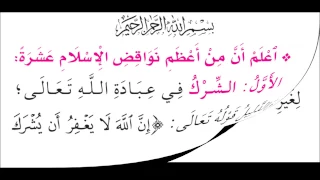 بسم الله الرحمن الرحيم
اعْلَمْ أَنَّ مِنْ أَعْظَمِ نَوَاقِضِ الْإِسْلَامِ عَشَرَةً:
الأَوَّلُ: الشِّرْكُ فِي عِبَادَةِ اللَّهِ تَعَالَى؛
لِغَيْرِ قَوْلُهُ تَعَالَى: ﴿إِنَّ اللَّهَ لَا يَغْفِرُ أَن يُشْرَكَ